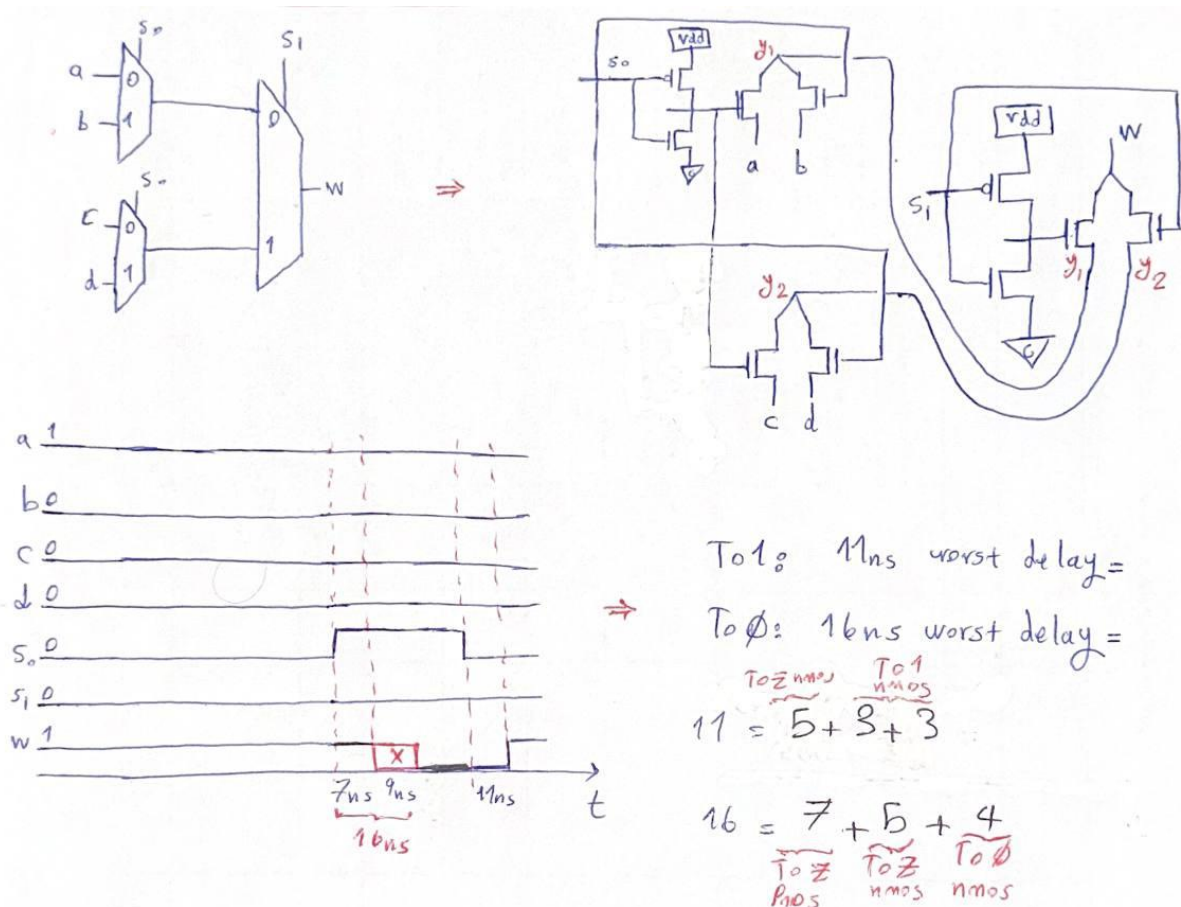 S0
S1
a
0
b
1
0
W
S0
c
0
1
d
1
⇒
S0
vdd
y1
a
b
G
y2
c
d
S1
vdd
W
y1
y2
G
a 1
b 0
c 0
d 0
S0 0
S1 0
w 1
X
7ns 9ns 11ns
t
16ns
⇒
To1: 11ns worst delay=
ToØ: 16ns worst delay=
ToZ nmos To1 nmos
11 = 5+3+3
16 = 7 + 5 + 4
To Z Pmos
To Z nmos
To Ø nmos